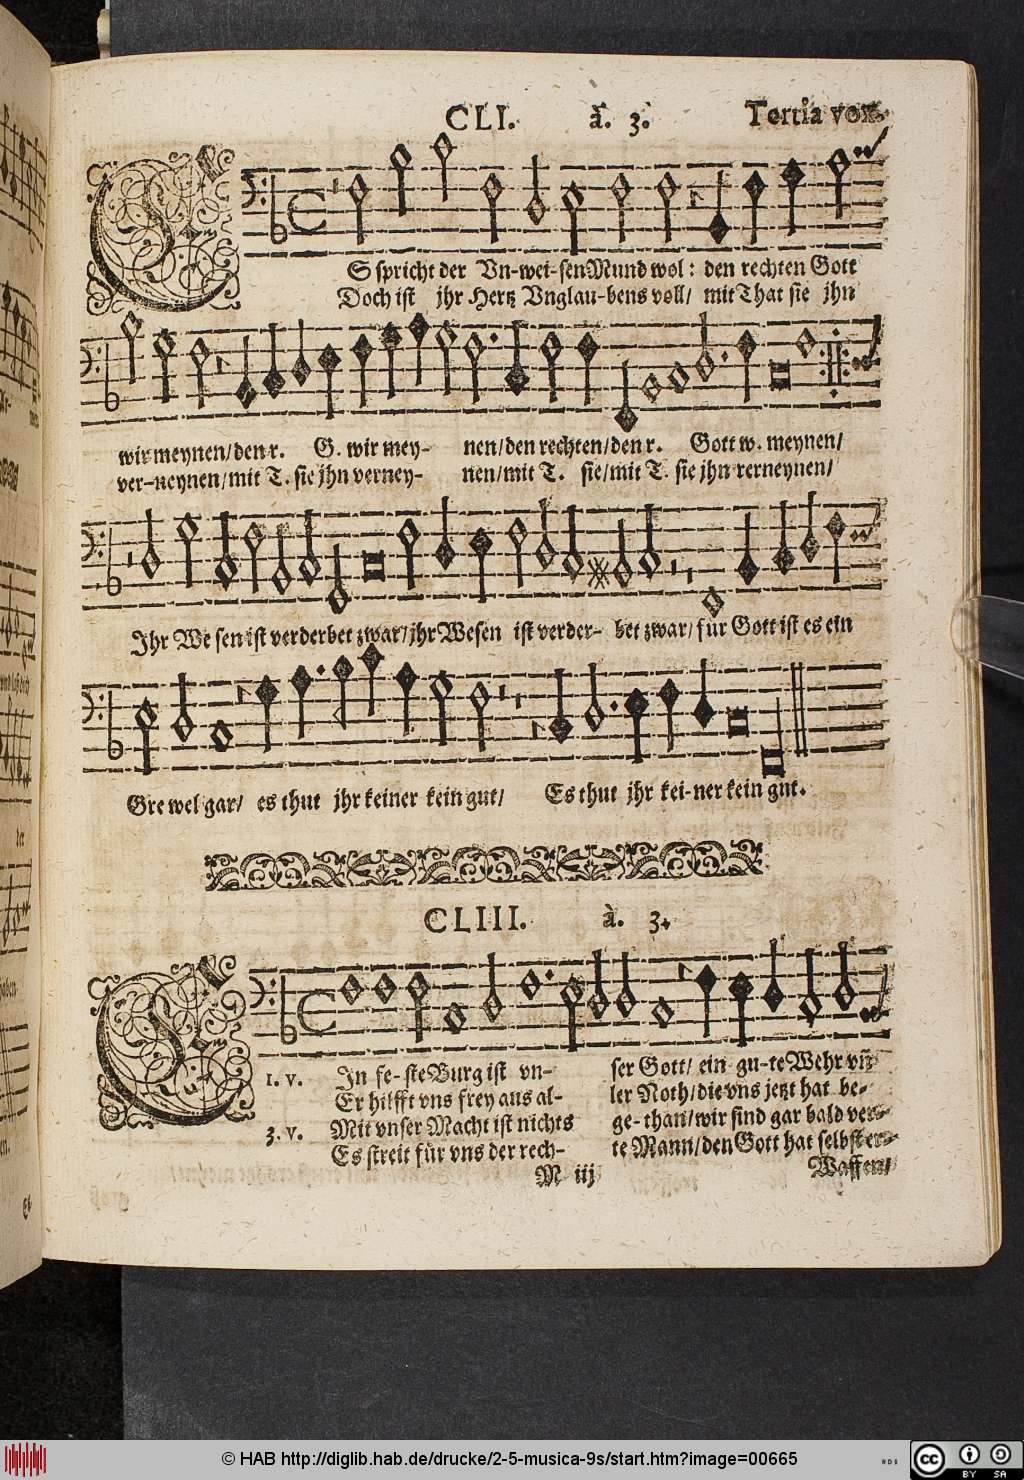 CLI. à. 3. Tertia vox.
ES spricht der Vn-wei-sen Mund wol: den rechten Gott
Doch ist jhr Hertz Vnglau-bens voll/ mit That sie jhn
wir meynen/ den r. G. wir mey- nen/ den rechten/ den r. Gott w. meynen/
ver-neynen/ mit T. sie jhn verney- nen/ mit T. sie/ mit T. sie jhn rerneynen/
Ihr We sen ist verderbet zwar/ jhr Wesen ist verder- bet zwar/ für Gott ist es ein
Gre wel gar/ es thut jhr keiner kein gut/ Es thut jhr kei-ner kein gut.
CLIII. à. 3.
1. v. EIn fe-ste Burg ist vn- ser Gott/ ein gu-te Wehr vñ
Er hilfft vns frey aus al- ler Noth/ die vns jetzt hat be-
3. v. Mit vnser Macht ist nichts ge-than/ wir sind gar bald ver-
Es streit für vns der rech- te Mann/ den Gott hat selbst er-
M iij Waffen/
der
© HAB http://diglib.hab.de/drucke/2-5-musica-9s/start.htm?image=00665
cc BY SA